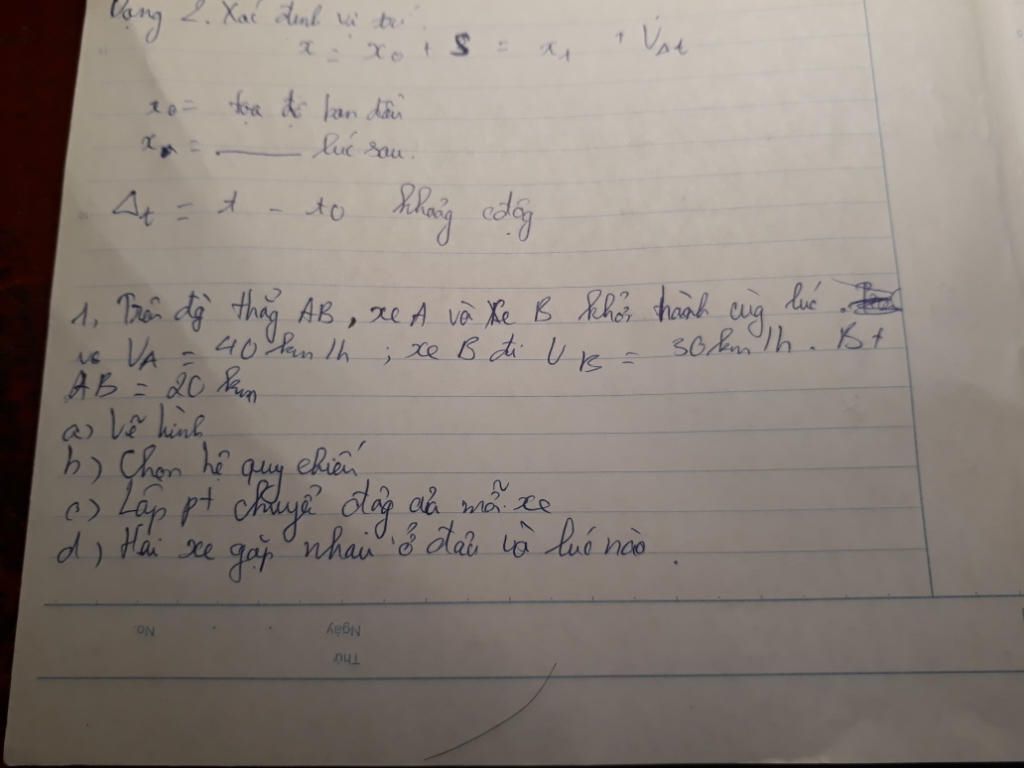 Dạng 2. Xác định vị trí
x = x0 + S = x1 + VΔt
x0 = tọa độ ban đầu
x = ——— lúc sau.
Δt = t - t0 khoảng cđộg
1, Trên đg thẳg AB, xe A và Xe B khởi hành cùg lúc.
vs VA = 40 km/h ; xe B đi VB = 30km/h. Bt
AB = 20 km
a) Vẽ hình
b) Chọn hệ quy chiếu
c) Lập pt chuyể độg của mỗi xe
d) Hai xe gặp nhau ở đâu và lúc nào.
No Ngày
Thứ